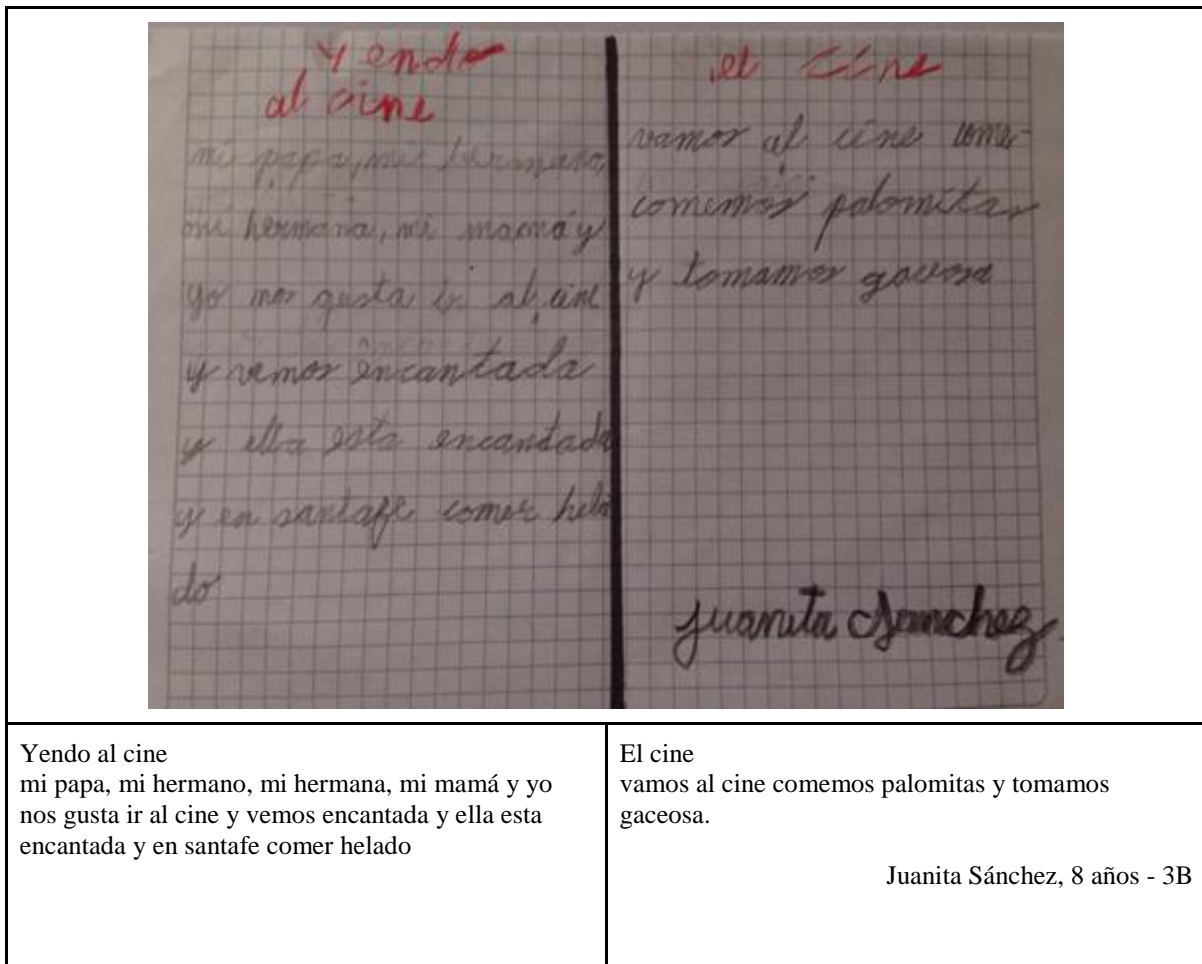 Yendo
al cine
mi papa, mi hermano,
mi hermana, mi mamá y
yo nos gusta ir al cine
y vemos encantada
y ella esta encantada
y en santafe comer hela
do
el cine
vamos al cine come-
comemos palomitas
y tomamos gaceosa
juanita Sanchez
Yendo al cine
mi papa, mi hermano, mi hermana, mi mamá y yo
nos gusta ir al cine y vemos encantada y ella esta
encantada y en santafe comer helado
El cine
vamos al cine comemos palomitas y tomamos
gaceosa.
Juanita Sánchez, 8 años - 3B